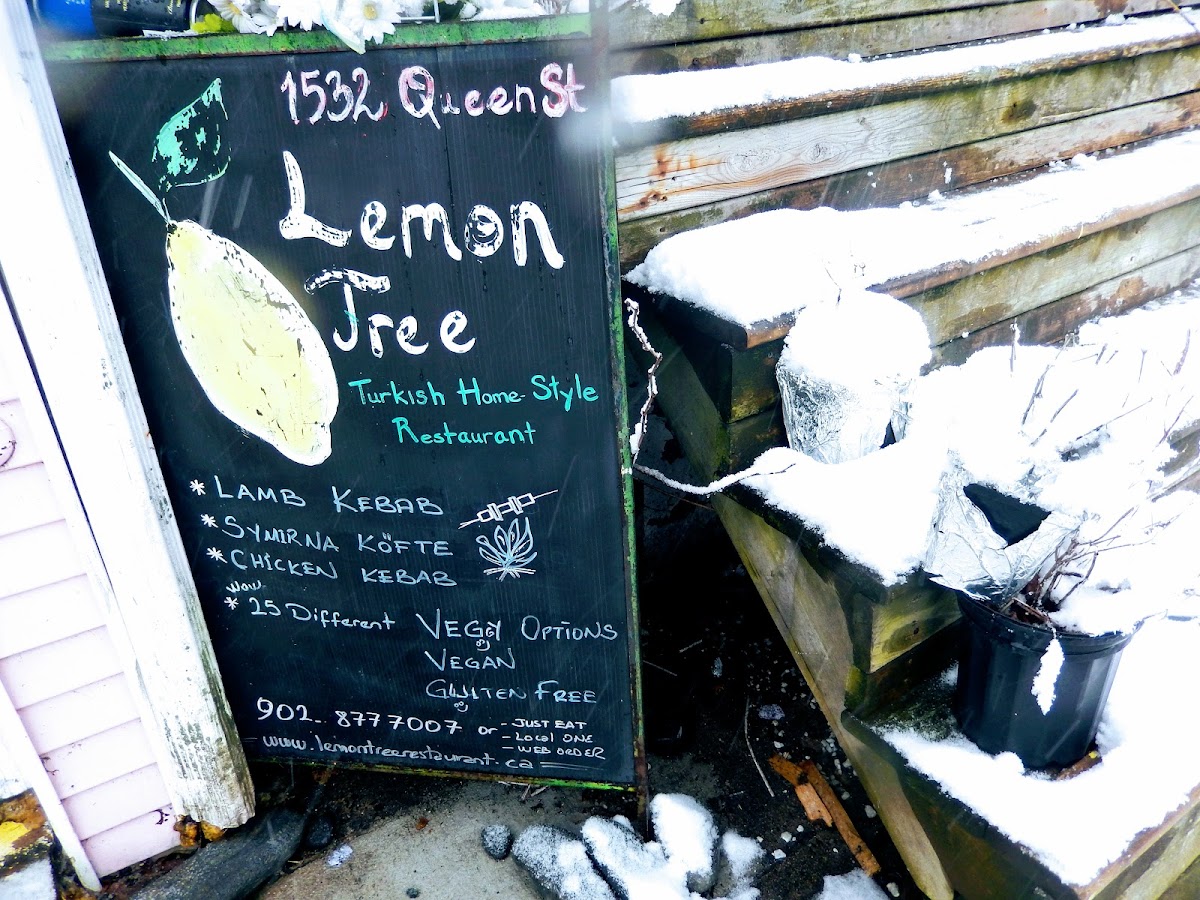 1532 Queen St
Lemon
Tree
Turkish Home-Style
Restaurant
* LAMB KEBAB
* SYMIRNA KÖFTE
* CHICKEN KEBAB
now
* 25 Different VEGGY OPTIONS
VEGAN
GLUTEN FREE
902.. 877 7007 or - JUST EAT
- LOCAL ONE
- WEB ORDER
- www.lemontreerestaurant.ca